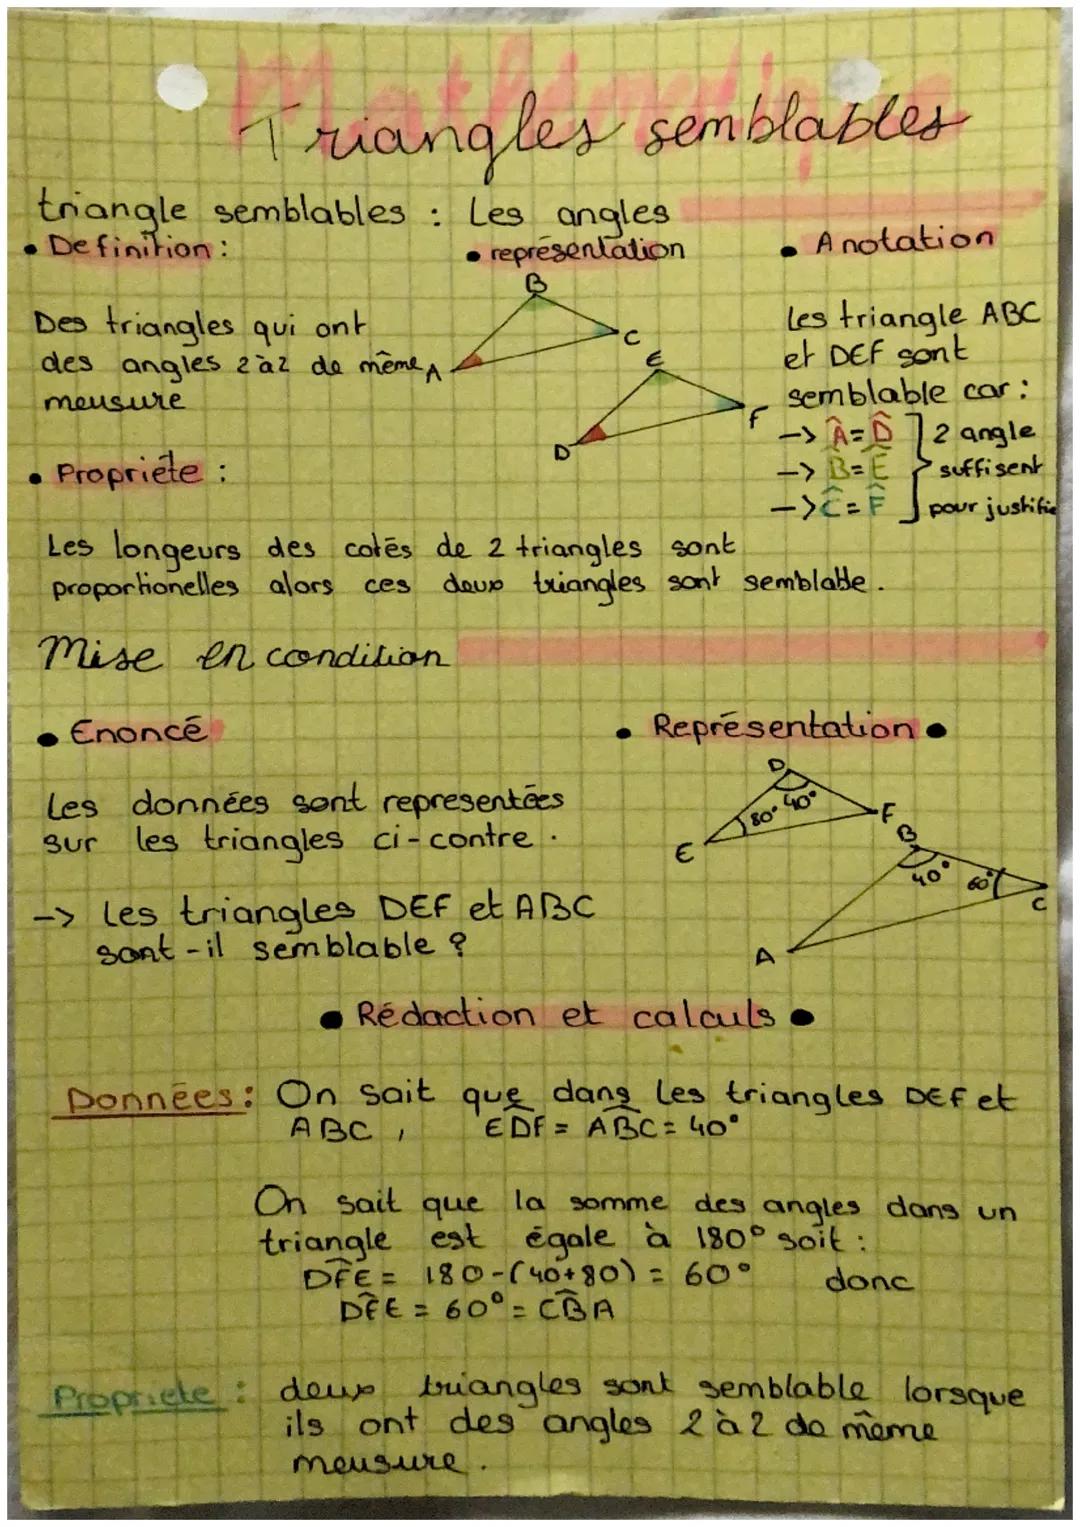 Mathématique
Triangles semblables
triangle semblables : Les angles
• Definition :
• représentation
• Anotation
Des triangles qui ont
des angles 2 à 2 de même
meusure
B
C
A
E
F
D
Les triangle ABC
et DEF sont
semblable car :
-> Â = D̂
-> B̂ = Ê
-> Ĉ = F̂
2 angle
suffisent
pour justifie
• Propriéte :
Les longeurs des cotés de 2 triangles sont
proportionelles alors ces deux triangles sont semblable.
Mise en condition
• Enoncé
• Représentation •
Les données sont representées
sur les triangles ci-contre.
-> Les triangles DEF et ABC
sont-il semblable ?
D
80° 40°
F
E
B
40° 60°
C
A
• Rédaction et calculs •
Données : On sait que dans les triangles DEF et
ABC, ED̂F = AB̂C = 40°
On sait que la somme des angles dans un
triangle est égale à 180° soit :
DF̂E = 180-(40+80) = 60° donc
DF̂E = 60° = CB̂A
Propriete : deux triangles sont semblable lorsque
ils ont des angles 2 à 2 de même
meusure.